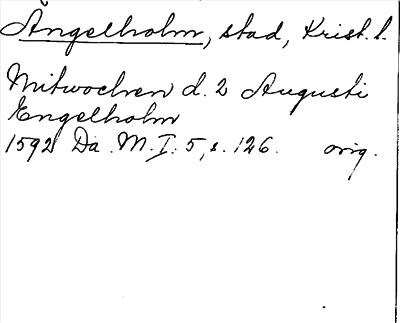 Ängelholm, stad, Krist. l.
Mitwochen d. 2 Augusti
Engelholm
1592 Da. M. I: 5, s. 126. orig.